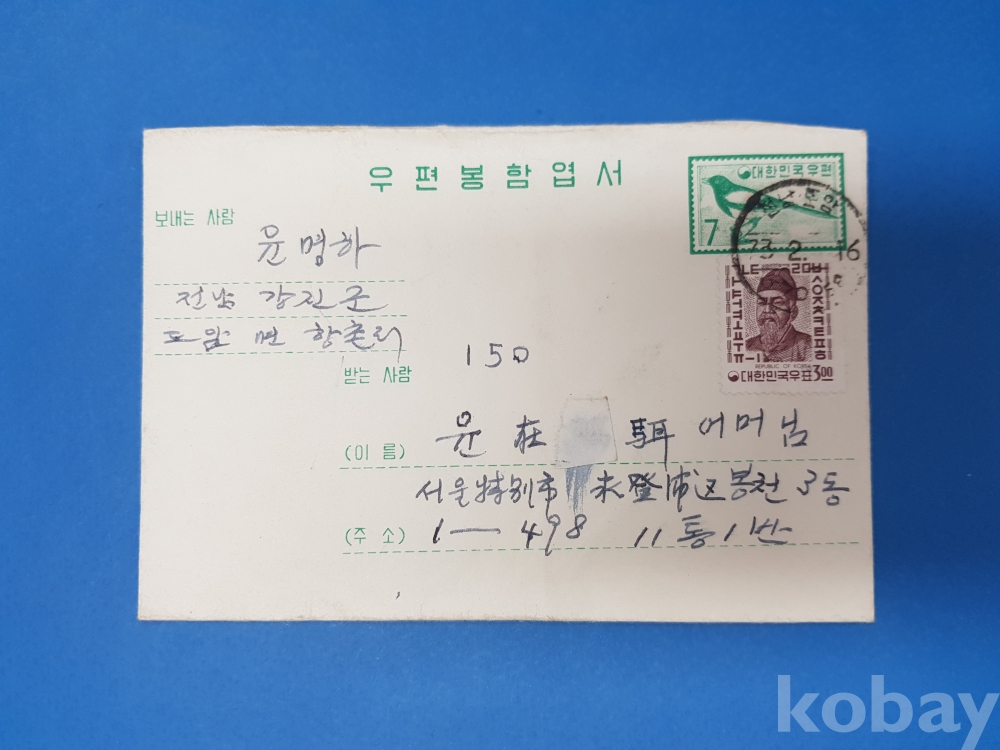 우편봉함엽서
대한민국우편
7
보내는 사람
윤명하
전남 강진군
도암면 항촌리
73. 2. 16
REPUBLIC OF KOREA
대한민국우표 3.00
150
받는 사람
(이 름) 윤 在 어머님
서울特別市 永登浦区 봉천 3동
(주 소) 1—498 11통 1반
kobay